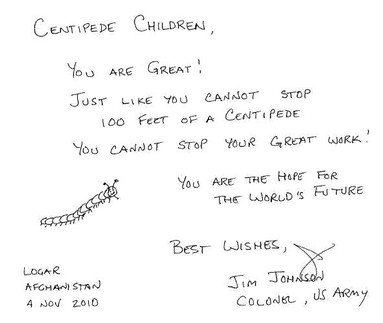 CENTIPEDE CHILDREN,
YOU ARE GREAT!
JUST LIKE YOU CANNOT STOP
100 FEET OF A CENTIPEDE
YOU CANNOT STOP YOUR GREAT WORK!
YOU ARE THE HOPE FOR
THE WORLD'S FUTURE
BEST WISHES,
JIM JOHNSON
COLONEL, US ARMY
LOGAR
AFGHANISTAN
4 NOV 2010